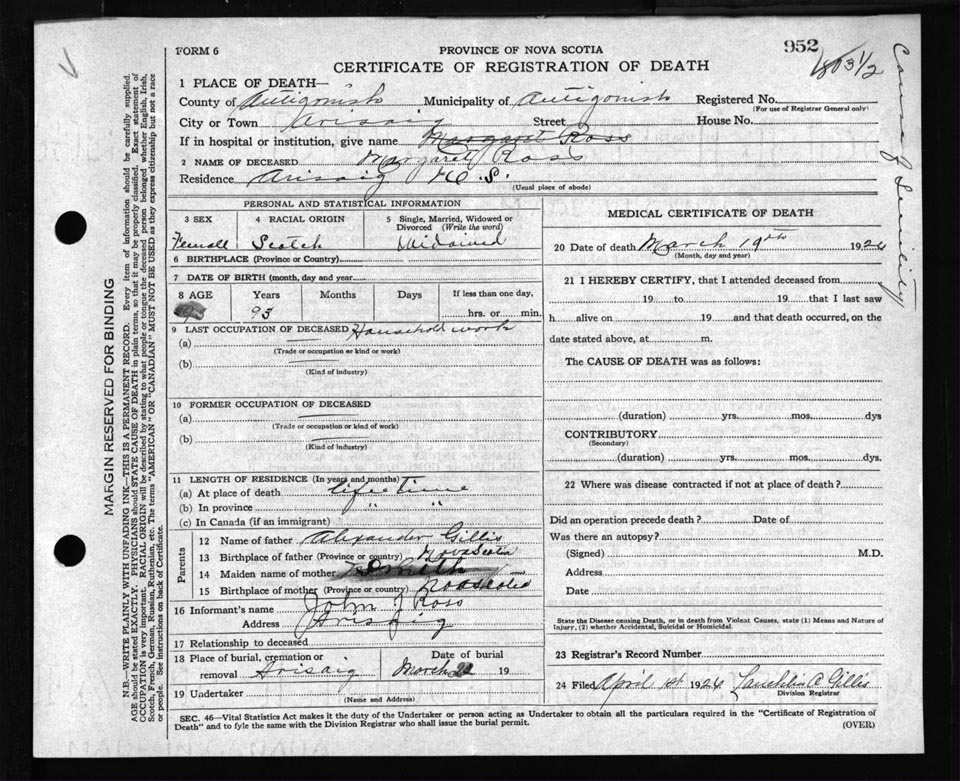 952
803 1/2
FORM 6
PROVINCE OF NOVA SCOTIA
CERTIFICATE OF REGISTRATION OF DEATH
Cause Senility
1 PLACE OF DEATH—
County of Antigonish Municipality of Antigonish Registered No.
(For use of Registrar General only)
City or Town Arisaig Street House No.
If in hospital or institution, give name Margaret Ross
2 NAME OF DECEASED Margaret Ross
Residence Arisaig N.S.
(Usual place of abode)
PERSONAL AND STATISTICAL INFORMATION
3 SEX 4 RACIAL ORIGIN 5 Single, Married, Widowed or Divorced (Write the word)
Female Scotch Widowed
6 BIRTHPLACE (Province or Country)
7 DATE OF BIRTH (month, day and year)
8 AGE Years Months Days If less than one day,
93 hrs. or min.
9 LAST OCCUPATION OF DECEASED Household work
(a)
(Trade or occupation or kind or work)
(b)
(Kind of industry)
10 FORMER OCCUPATION OF DECEASED
(a)
(Trade or occupation or kind of work)
(b)
(Kind of industry)
11 LENGTH OF RESIDENCE (In years and months)
(a) At place of death life time
(b) In province " "
(c) In Canada (if an immigrant)
Parents
12 Name of father Alexander Gillis
13 Birthplace of father (Province or country) Nova Scotia
14 Maiden name of mother Smith
15 Birthplace of mother (Province or country)
16 Informant's name John J Ross
Address Arisaig
17 Relationship to deceased
18 Place of burial, cremation or removal Arisaig Date of burial March 22 19
19 Undertaker
(Name and Address)
MEDICAL CERTIFICATE OF DEATH
20 Date of death March 19th 1926
(Month, day and year)
21 I HEREBY CERTIFY, that I attended deceased from
19 to 19 that I last saw
h alive on 19 and that death occurred, on the
date stated above, at m.
The CAUSE OF DEATH was as follows:
(duration) yrs. mos. dys
CONTRIBUTORY
(Secondary)
(duration) yrs. mos. dys.
22 Where was disease contracted if not at place of death?
Did an operation precede death? Date of
Was there an autopsy?
(Signed) M.D.
Address
Date
State the Disease causing Death, or in death from Violent Causes, state (1) Means and Nature of
Injury, (2) whether Accidental, Suicidal or Homicidal.
23 Registrar's Record Number
24 Filed April 1st 1926 Lauchlin A Gillis
Division Registrar
SEC. 46—Vital Statistics Act makes it the duty of the Undertaker or person acting as Undertaker to obtain all the particulars required in the "Certificate of Registration of
Death" and to fyle the same with the Division Registrar who shall issue the burial permit.
(OVER)
MARGIN RESERVED FOR BINDING
N.B.—WRITE PLAINLY WITH UNFADING INK—THIS IS A PERMANENT RECORD. Every item of information should be carefully supplied.
AGE should be stated EXACTLY. PHYSICIANS should STATE CAUSE OF DEATH in plain terms, so that it may be properly classified. Exact statement of
OCCUPATION is very important. RACIAL ORIGIN will be described by stating to what people or tongue the deceased person belonged whether English, Irish,
Scotch, French, German, Russian, Ruthenian, etc. The terms "AMERICAN" OR "CANADIAN" MUST NOT BE USED as they express citizenship but not a race
or people. See instructions on back of Certificate.